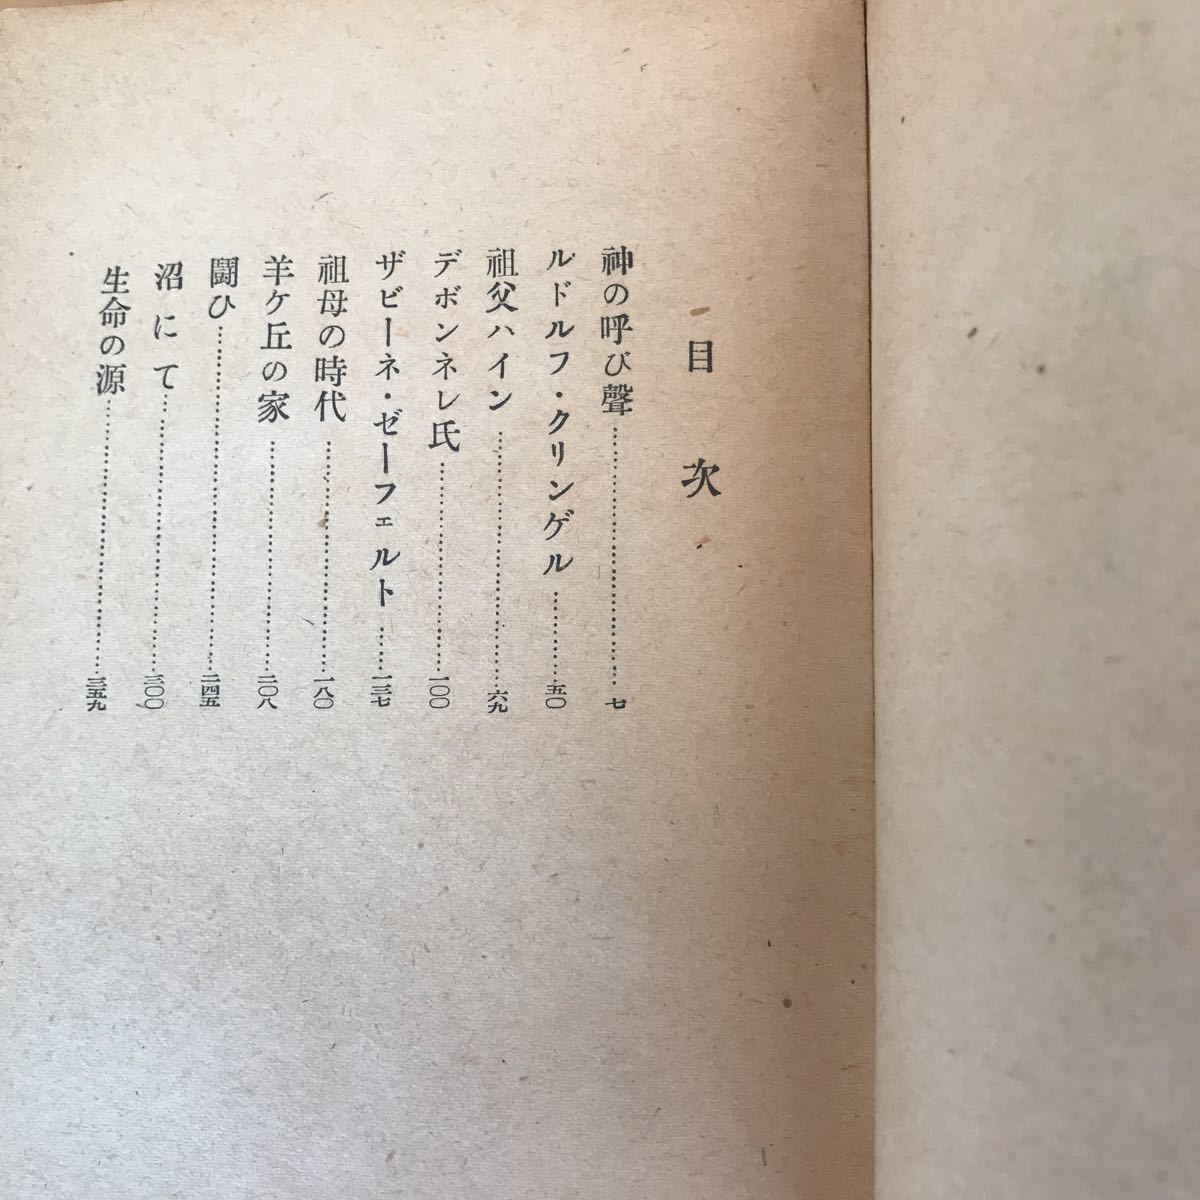 目次
神の呼び聲……七
ルドルフ・クリンゲル……五〇
祖父ハイン……六九
デボンネレ氏……一〇〇
ザビーネ・ゼーフェルト……一三七
祖母の時代……一八〇
羊ケ丘の家……二〇八
闘ひ……二四五
沼にて……三〇〇
生命の源……三五九